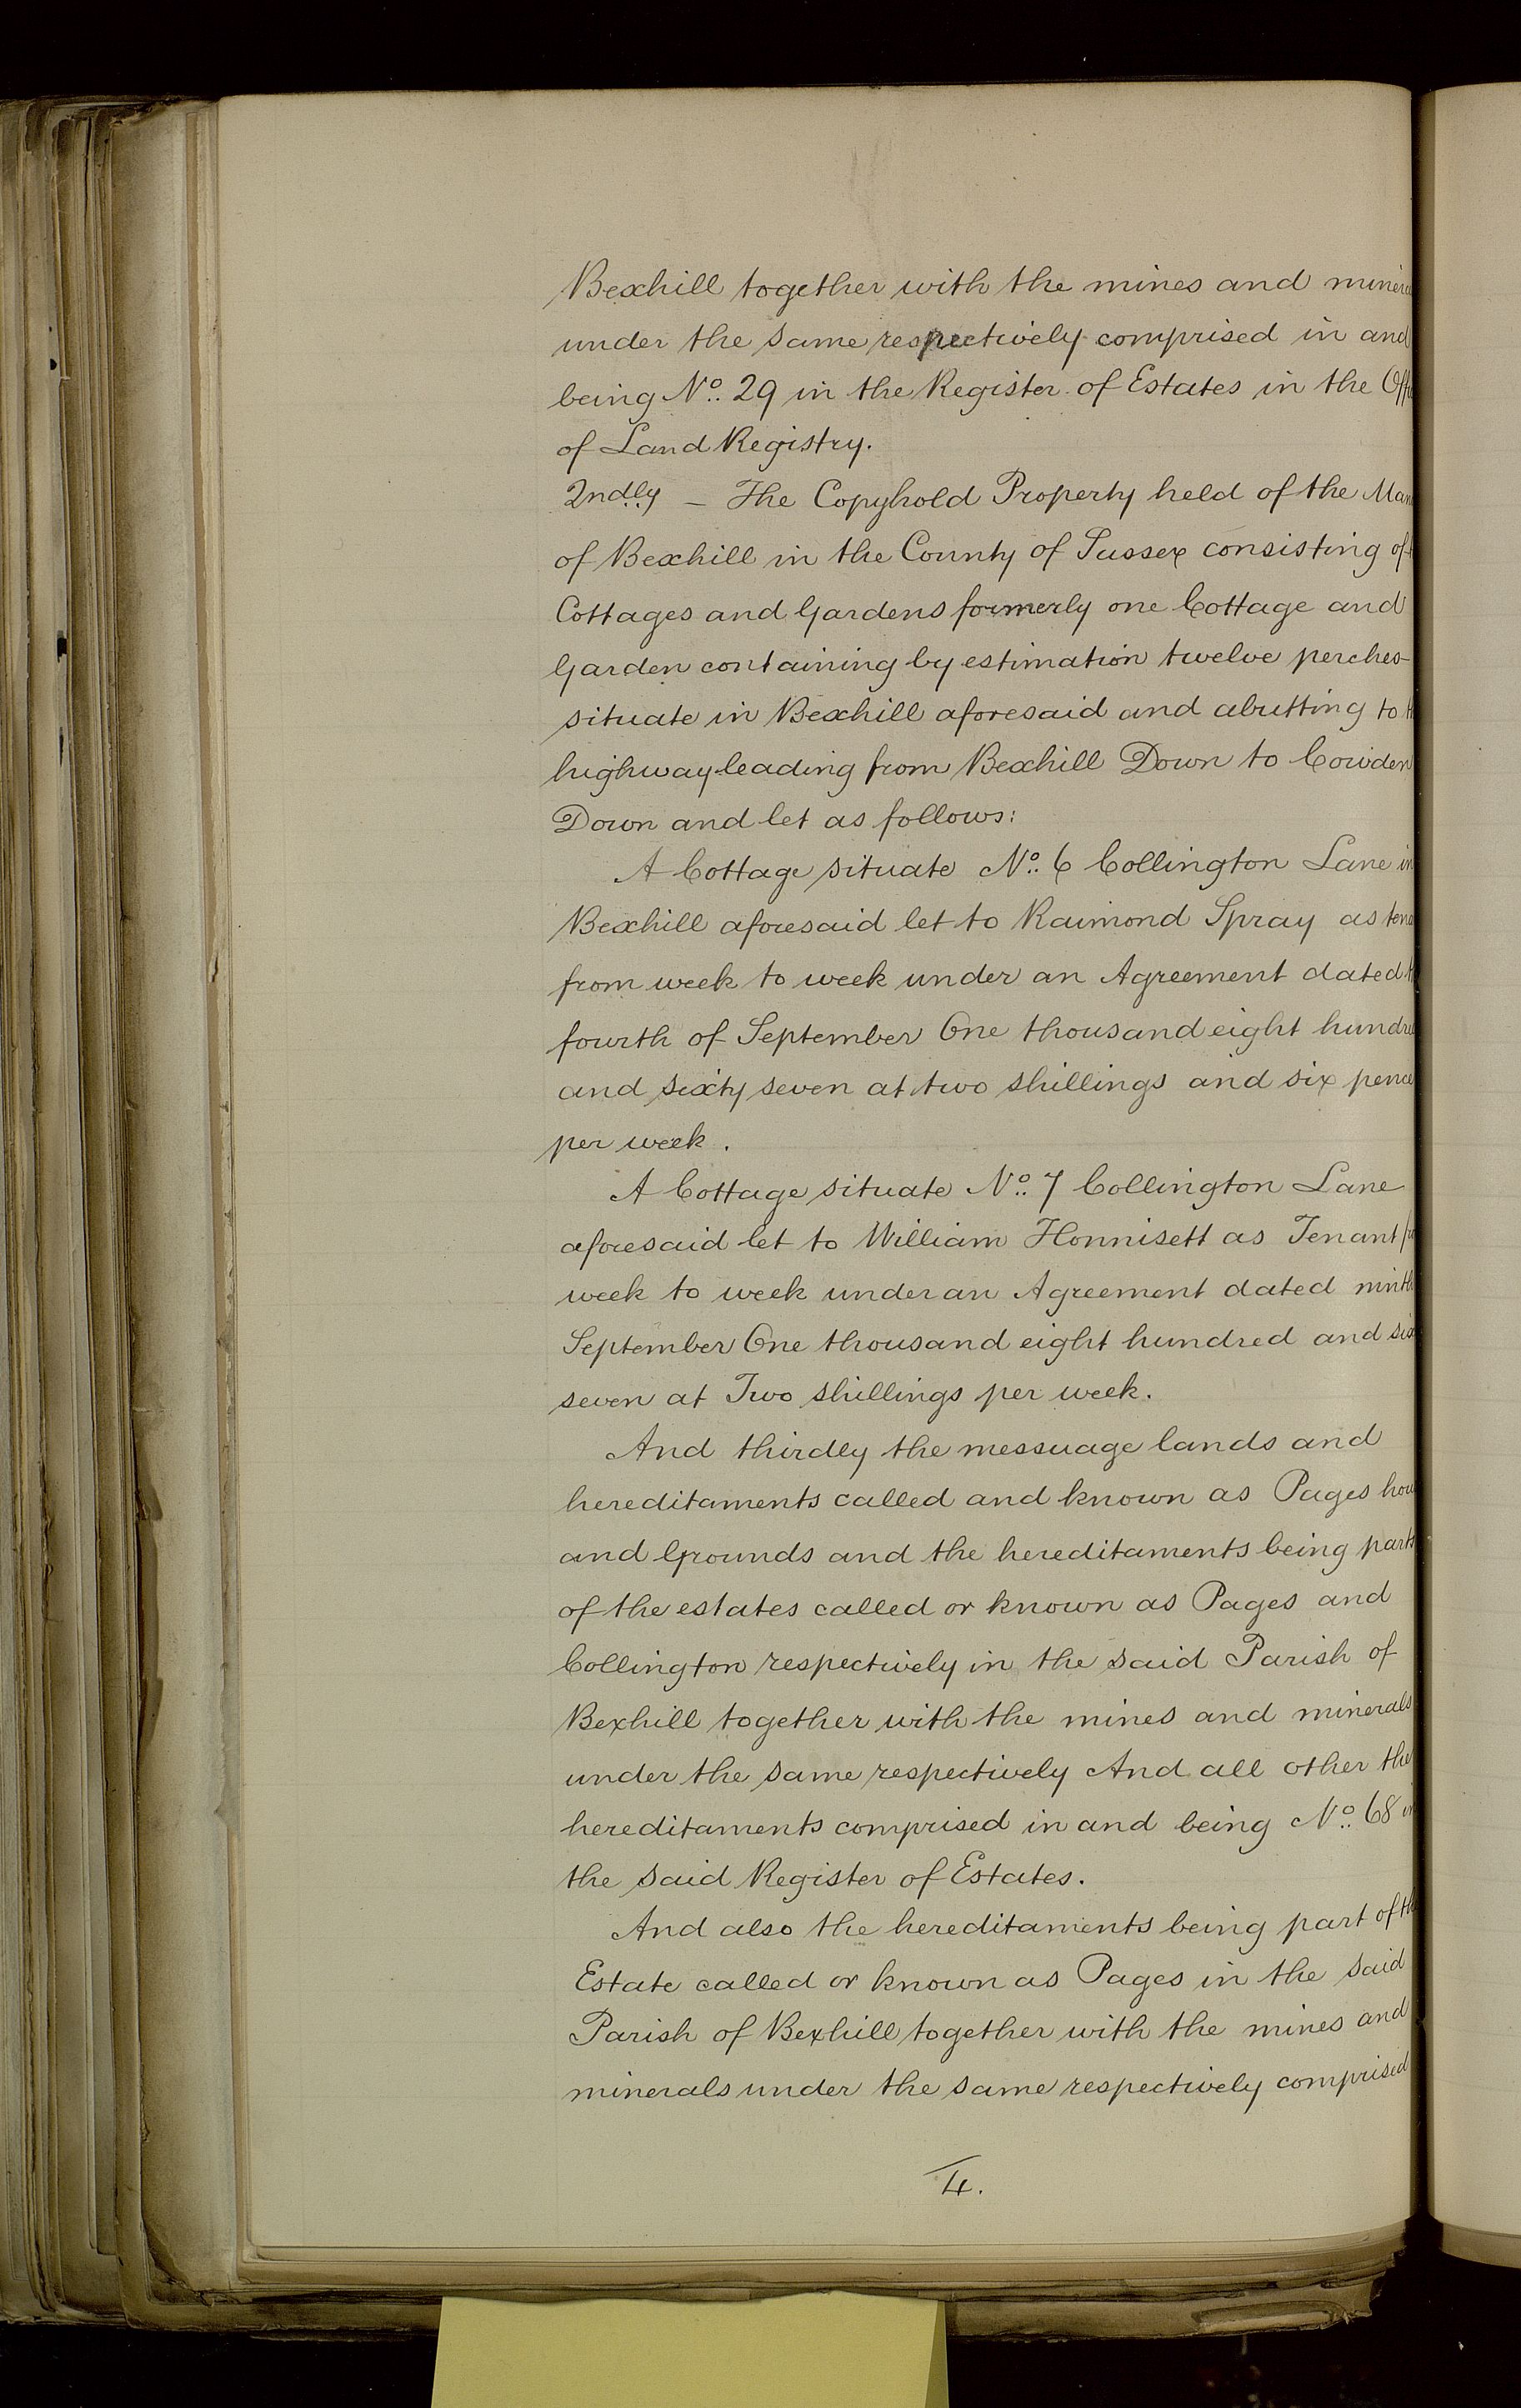 Bexhill together with the mines and
under the same respectively comprised in and
being No. 29 in the Register of Estates in the
of Land Registry.
2ndly – The Copyhold Property held of the
of Bexhill in the County of Sussex consisting of
Cottages and Gardens formerly one Cottage and
Garden containing by estimation twelve perches
situate in Bexhill aforesaid and abutting to
highway leading from Bexhill Down to Cowden
Down and let as follows:
A Cottage situate No. 6 Collington Lane in
Bexhill aforesaid let to Raimond Spray as
from week to week under an Agreement dated
fourth of September One thousand eight hundred
and sixty seven at two shillings and six pence
per week.
A Cottage situate No. 7 Collington Lane
aforesaid let to William Honnisett as Tenant
week to week under an Agreement dated ninth
September One thousand eight hundred and
seven at Two shillings per week.
And thirdly the messuage lands and
hereditaments called and known as Pages
and Grounds and the hereditaments being parts
of the estates called or known as Pages and
Collington respectively in the said Parish of
Bexhill together with the mines and minerals
under the same respectively And all other the
hereditaments comprised in and being No. 68 in
the said Register of Estates.
And also the hereditaments being part of the
Estate called or known as Pages in the said
Parish of Bexhill together with the mines and
minerals under the same respectively comprised
4.